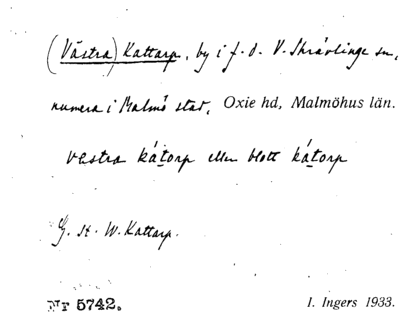 (Västra) Kattarp, by i f. d. V. Skrävlinge sn,
numera i Malmö stad, Oxie hd, Malmöhus län.
västra kátorp eller blott kátorp
G. st. W. Kattarp.
Nr 5742. I. Ingers 1933.